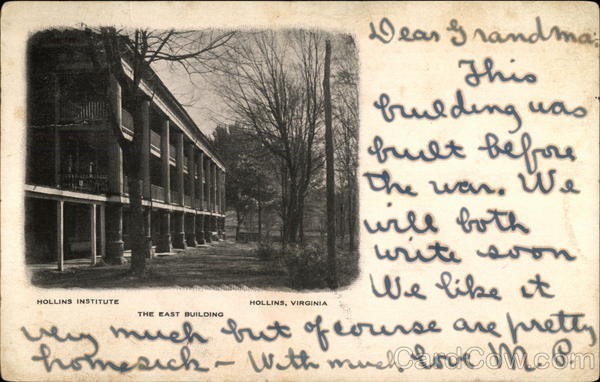 Dear Grandma:
This
building was
built before
the war. We
will both
write soon
We like it
HOLLINS INSTITUTE
HOLLINS, VIRGINIA
THE EAST BUILDING
very much but of course are pretty
homesick – With much love M. P.
CardCow.com